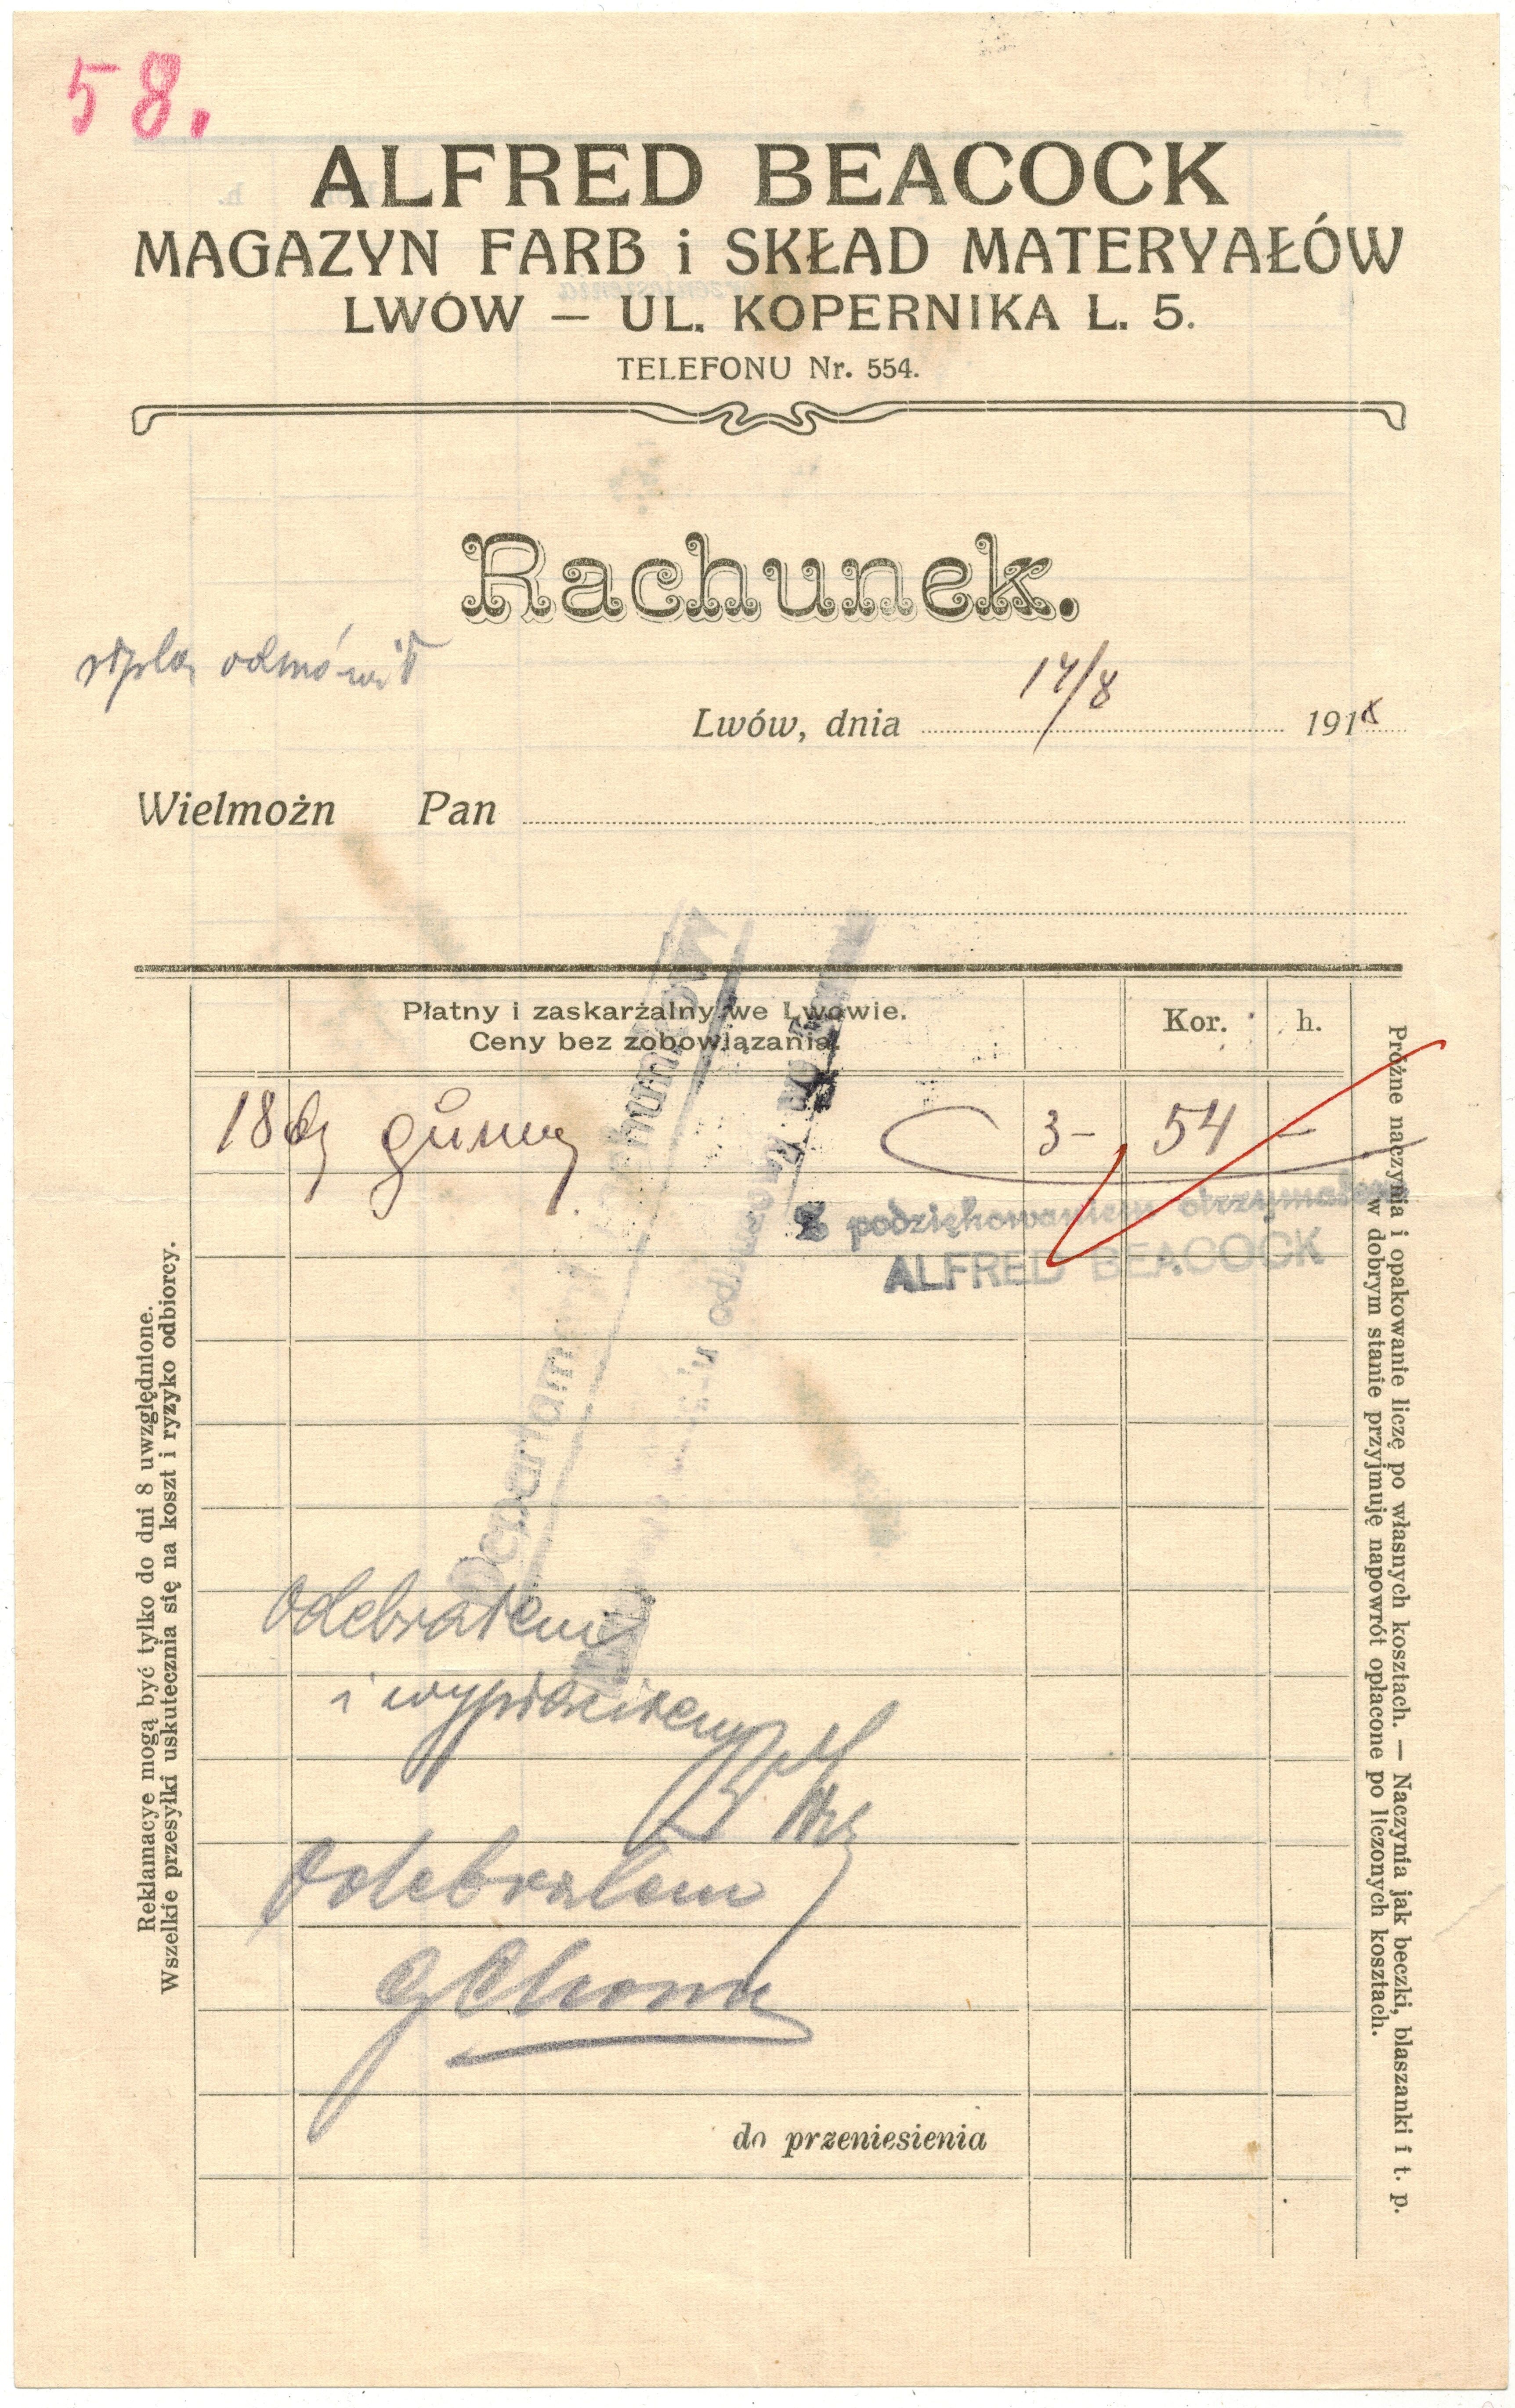 58.
ALFRED BEACOCK
MAGAZYN FARB i SKŁAD MATERYAŁÓW
LWÓW — UL. KOPERNIKA L. 5.
TELEFONU Nr. 554.
Rachunek.
odmówił
Lwów, dnia 17/8 1918
Wielmożn Pan
Płatny i zaskarżalny we Lwowie.
Ceny bez zobowiązania.
Kor. h.
18 dg gumy 3- 54 -
Z podziękowaniem otrzymałem
ALFRED BEACOCK
Departament rachunkowy
Odebrałem
i wypłaciłem
Odebrałem
do przeniesienia
Reklamacye mogą być tylko do dni 8 uwzględnione.
Wszelkie przesyłki uskutecznia się na koszt i ryzyko odbiorcy.
Próżne naczynia i opakowanie liczę po własnych kosztach. — Naczynia jak beczki, blaszanki i t. p.
w dobrym stanie przyjmuję napowrót opłacone po liczonych kosztach.